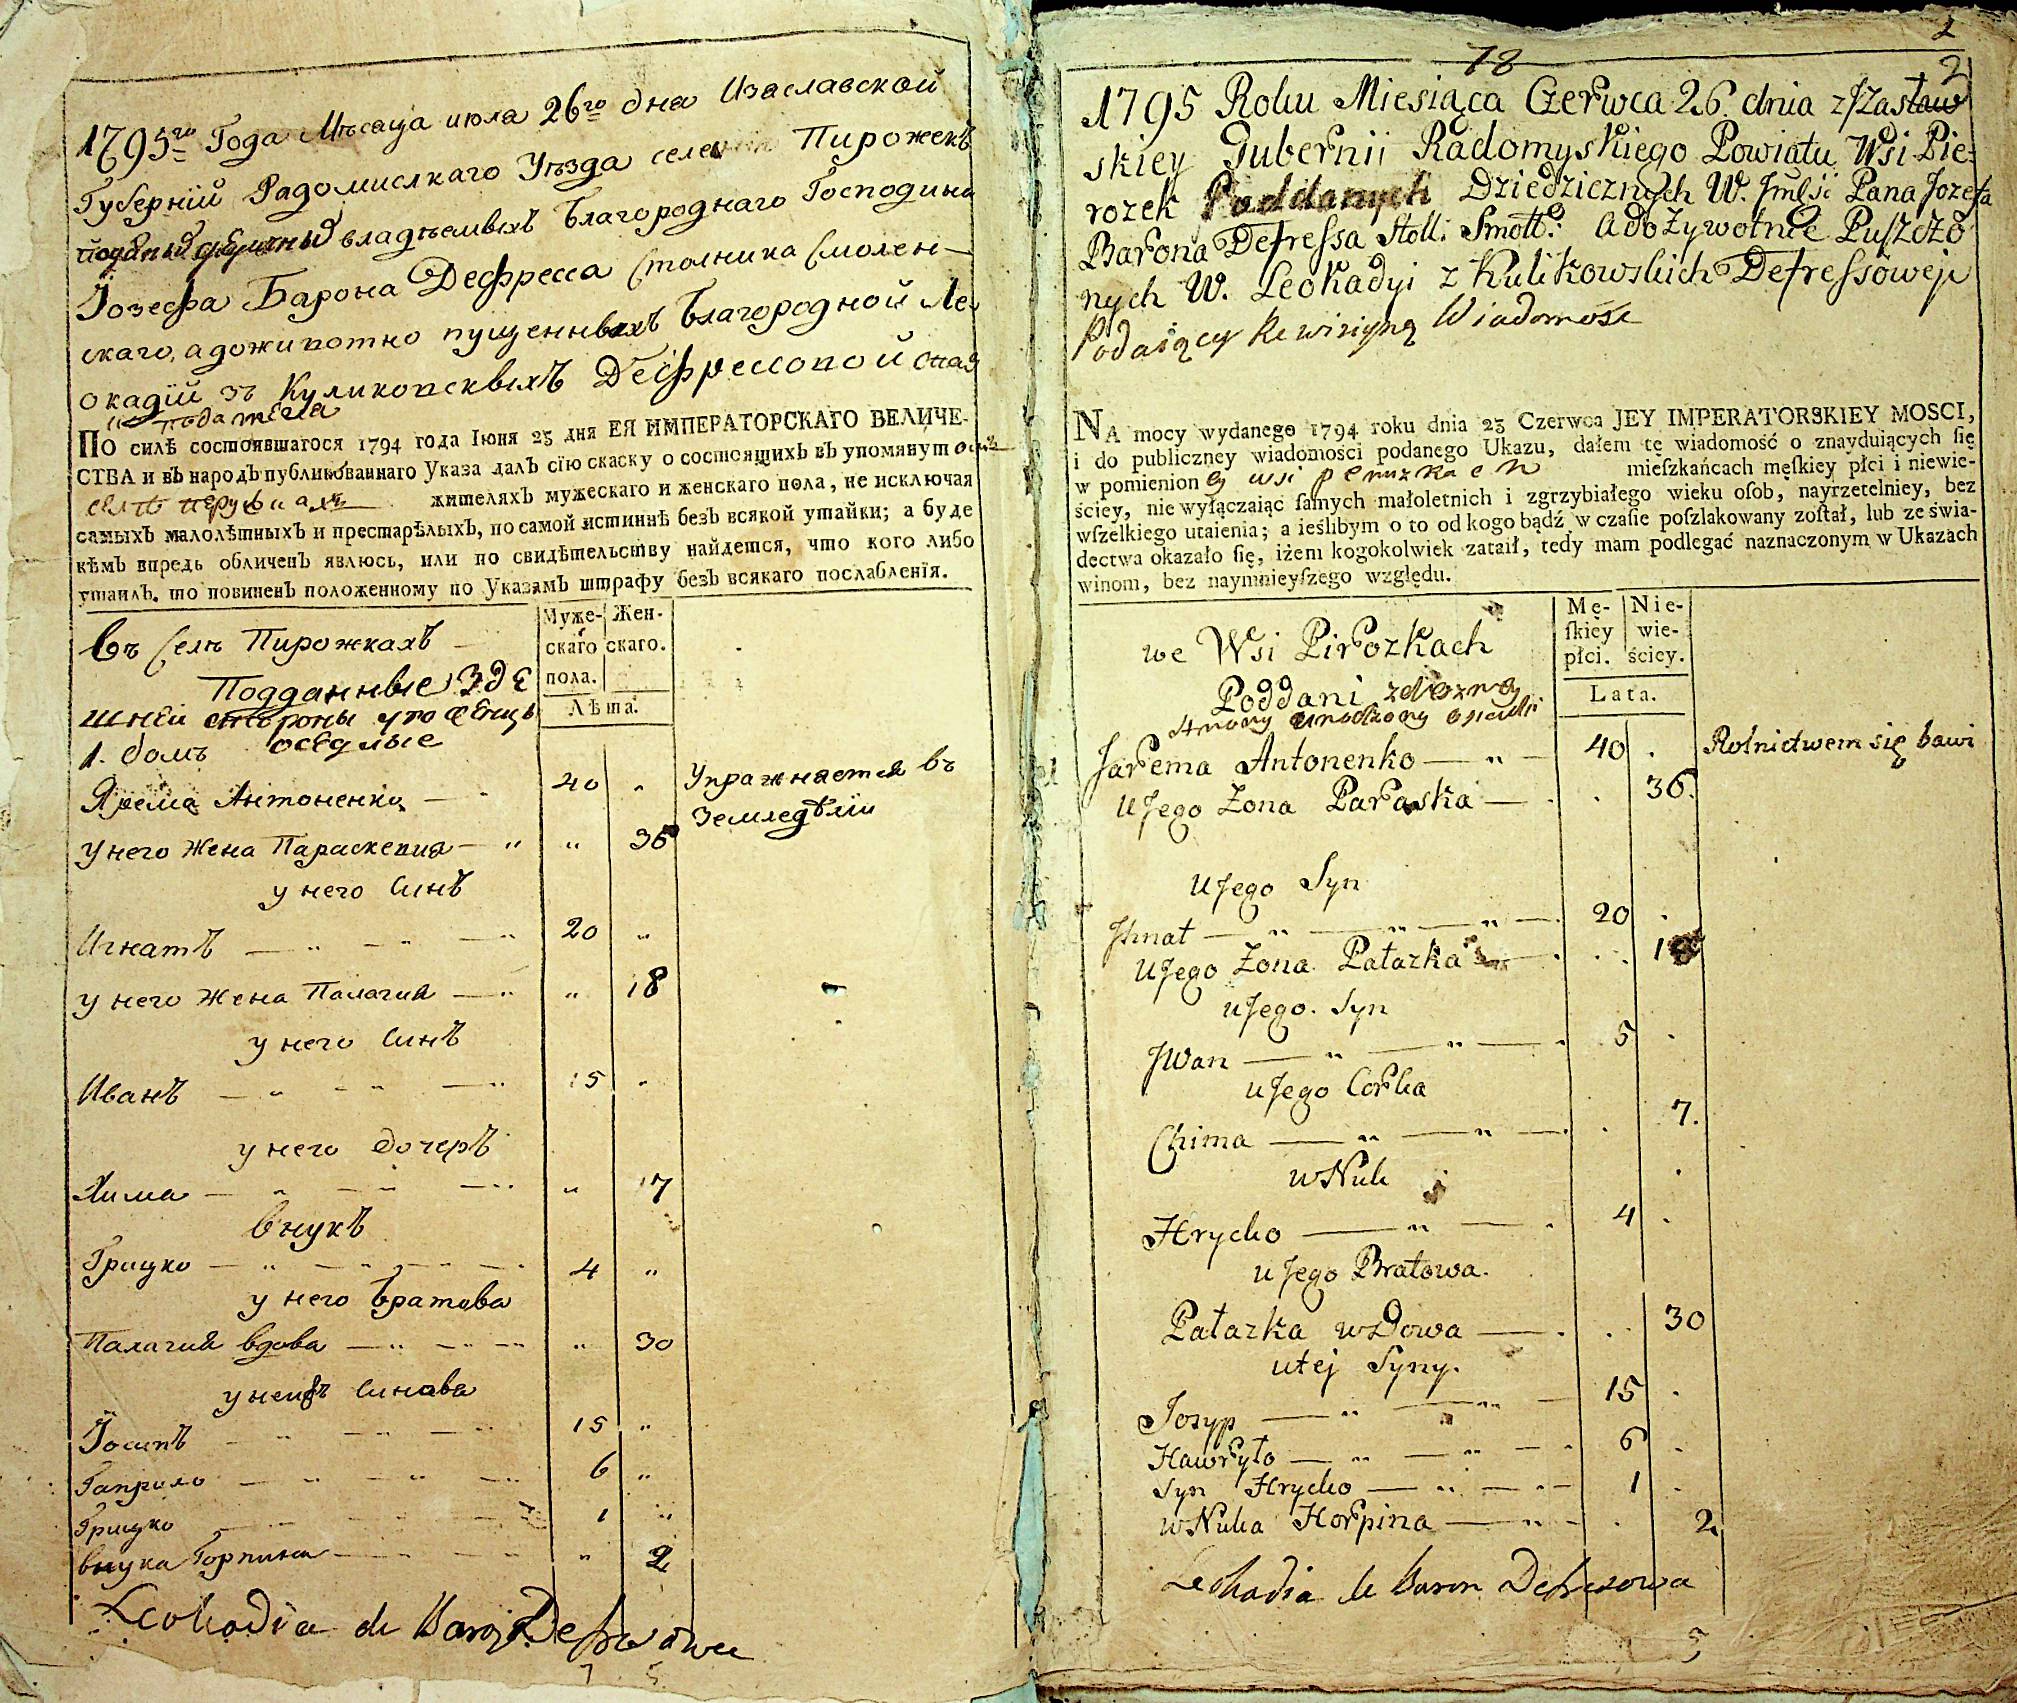 1795го Года Мѣсаца июля 26го дня Изаславской
Губернїй Радомислкаго Уѣзда Пирожекъ
владѣемыхъ благороднаго Господина
Іозефа Барона Дефресса Столника Смолен-
скаго, а дожипотно пущенныхъ благородной Лео
окадїй зъ Куликопскыхъ Дефрессопой
По силѣ состоявшагося 1794 года Іюня 23 дня ЕЯ ИМПЕРАТОРСКАГО ВЕЛИЧЕ-
СТВА и въ народъ публикованнаго Указа далъ сїю скаску о состоящихъ въ упомянутомъ
селѣ жителяхъ мужескаго и женскаго пола, не исключая
самыхъ малолѣтныхъ и престарѣлыхъ, по самой истиннѣ безъ всякой утайки; а буде
кѣмъ впредь обличенъ явлюсь, или по свидѣтельству найдется, что кого либо
утаилъ, то повиненъ положенному по Указамъ штрафу безъ всякаго послабленїя.
Въ Селѣ Пирожкахъ
Муже- Жен-
скаго скаго.
пола.
Лѣта.
Подданные Зде
шней стороны
1. домъ оседлые
Ярема Антоненко — 40 „ Упражняется въ
Земледѣлїи
У него Жена Параскепия — „ „ 36
у него Синъ
Игнатъ — „ — „ — „ 20 „
у него Жена Палагия — „ „ 18
у него Синъ
Иванъ — „ — „ — „ 15 „
у него дочеръ
Хима — „ — „ — „ „ 17
внукъ
Грицко — „ — „ — „ 4 „
у него братова
Палагия вдова — „ — „ „ 30
у неи Синова
Іосипъ — „ — „ — „ 15 „
Гаприло — „ — „ — „ 6 „
Грицко — — — 1 „
внука Горпина — „ — „ 2
Leokadia de Baron Defresowa
2
18
2
1795 Roku Miesiąca Czerwca 26 dnia z Jzasław
skiey Gubernii Radomyskiego Powiatu Wsi Pie-
rozek Poddanych Dziedzicznych W. Jmści Pana Jozefa
Barona Defressa Stoll: Smoll: a dożywotnie Puszczo
nych W. Leokadyi z Kulikowskich Defressowej
Podaiący Rewizyiną Wiadomość
NA mocy wydanego 1794 roku dnia 23 Czerwca JEY IMPERATORSKIEY MOSCI,
i do publiczney wiadomości podanego Ukazu, dałem tę wiadomość o znayduiących ſię
w pomienioney wsi mieſzkańcach męſkiey płci i niewie-
ściey, nie wyłączaiąc ſamych małoletnich i zgrzybiałego wieku oſob, nayrzetelniey, bez
wſzelkiego utaienia; a ieślibym o to od kogo bądź w czaſie poſzlakowany zoſtał, lub ze świa-
dectwa okazało ſię, iżem kogokolwiek zataił, tedy mam podlegać naznaczonym w Ukazach
winom, bez naymnieyſzego względu.
we Wsi Pirozkach
Mę- Nie-
ſkiey wie-
płci. ściey.
Lata.
Poddani
Jarema Antonenko — „ — 40 . Rolnictwem się bawi
U Jego Zona Paraska — . . 36.
U Jego Syn
Jhnat — „ — „ — „ — . 20 .
U Jego Zona Pałazka — . . .
u Jego Syn
Jwan — „ — „ — . 5 .
u Jego Corka
Chima — „ — „ — . . 7.
wNuk
Hrycko — „ — . 4 .
u Jego Bratowa.
Pałazka wDowa — . . . 30
u tej Syny.
Josyp — „ — „ — 15 .
Hawryło — „ — „ — . 6 .
Syn Hrycko — „ — „ — 1 .
wNuka Horpina — „ — . 2
Leokadia de Baron Defresowa
5